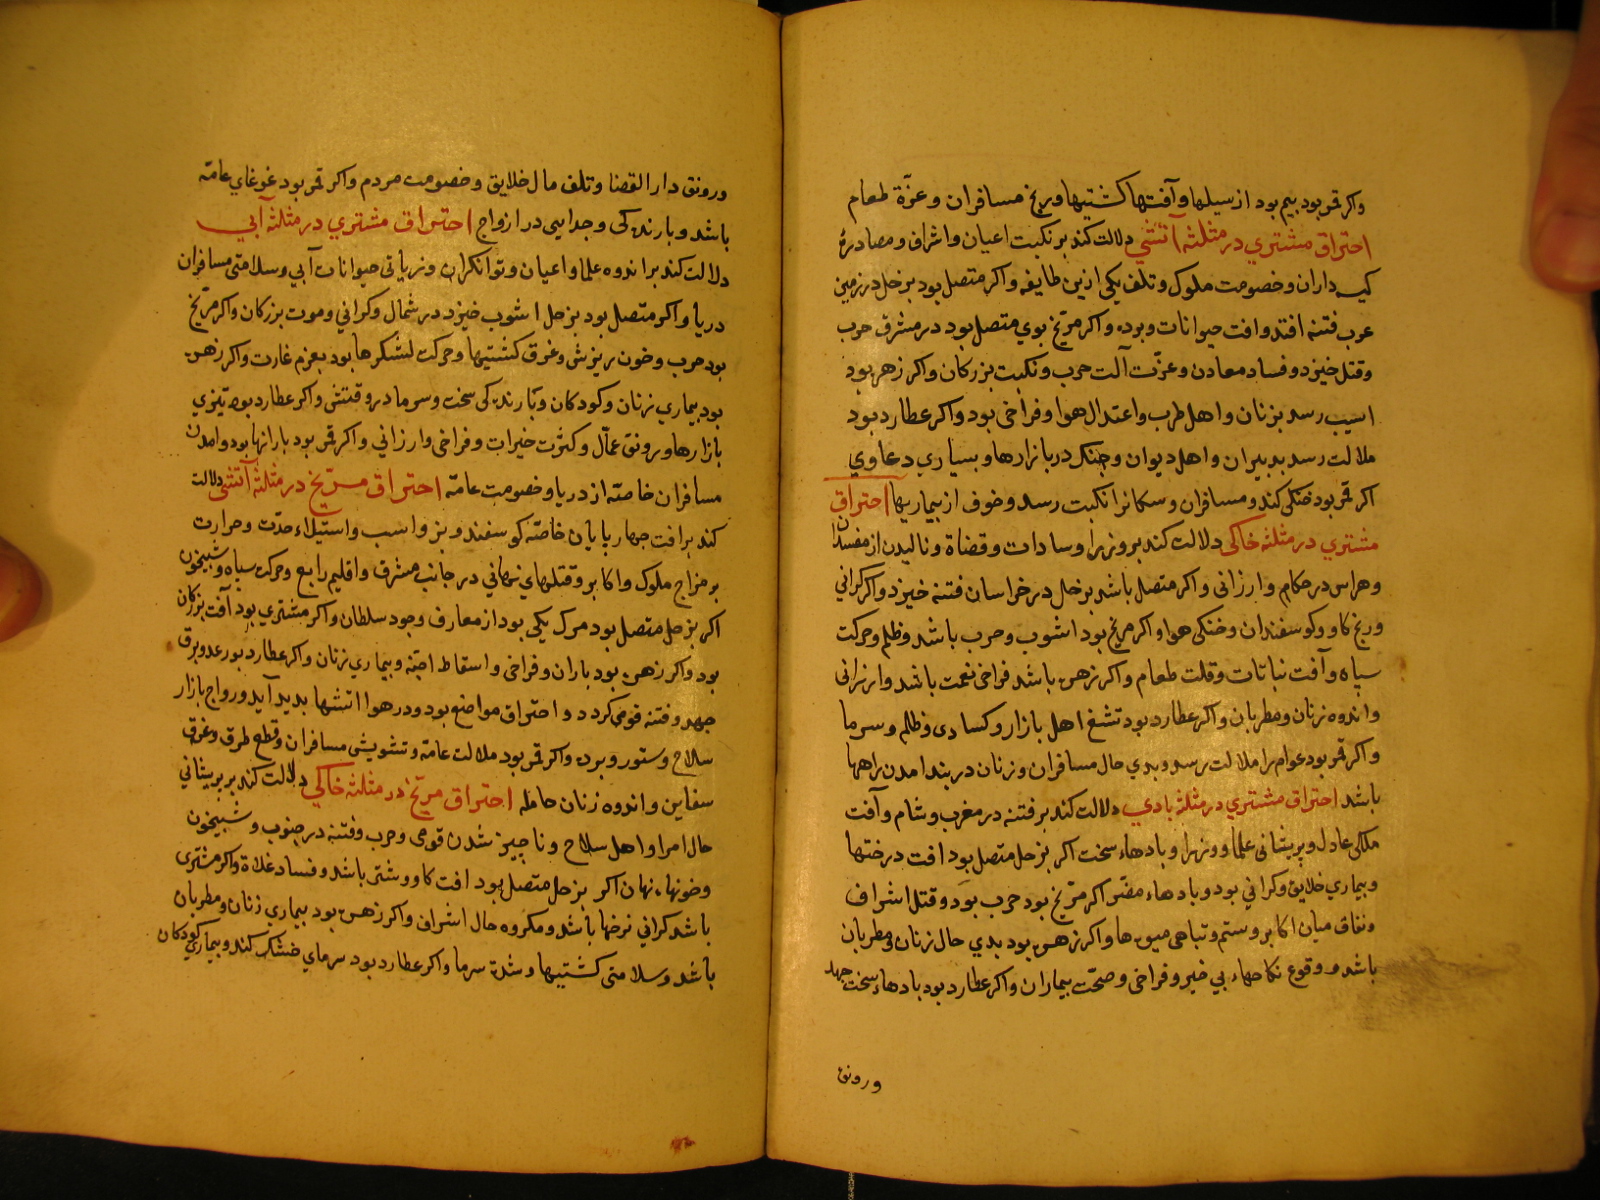 واکر قمر بود بیم بود از سیلها و آفتها کشتیها و رنج مسافران و عزّة طعام
احتراق مشتري در مثلثه آتشي دلالت کند بر نکبت اعیان و اشراف و مصادرهٔ
کیسه داران و خصومت ملوک و تلف یکی ازین طایفه واکر متصل بود بزحل در زمین
عرب فتنه افتد و افت حیوانات و برده واکر مریخ بوي متصل بود در مشرق حرب
وقتل خیزد و فساد معادن و عزّت آلت حرب و نکبت بزرکان واکر زهره بود
اسیب رسد بزنان و اهل طرب و اعتدال هوا و فراخی بود واکر عطارد بود
ملالت رسد بدبیران و اهل دیوان و جنک در بازارها و بسیاري دعاوي
اکر قمر بود خنکی کند و مسافران و سکانرا نکبت رسد و خوف از بیماریها احتراق
مشتري در مثلثه خاکی دلالت کند بر وزرا و سادات و قضاة و نالیدن از مفسدان
وهراس در حکام و ارزانی واکر متصل باشد بزحل در خراسان فتنه خیزد واکر کراني
ورنج کاو وکوسفندان و خنکی هوا واکر مریخ بود اشوب و حرب باشد و ظلم و حرکت
سپاه و آفت نباتات و قلت طعام واکر زهره باشد فراخی نعمت باشد و ارزانی
و اندوه زنان و مطربان واکر عطارد بود تشغ اهل بازار و کسادی و ظلم و سرما
واکر قمر بود عوام را ملالت رسد و بدي حال مسافران و زنان در بند امدن راهها
باشد احتراق مشتري در مثلثه بادي دلالت کند بر فتنه در مغرب و شام و آفت
ملکی عادل و پریشانی علما و وزرا و بادهاء سخت اکر بزحل متصل بود افت درختها
و بیماري خلایق و کراني بود و بادهاء مضر اکر مریخ بود حرب بود و قتل اشراف
ونفاق میان اکابر و ستم و تباهی میوه ها واکر زهره بود بدي حال زنان و مطربان
باشد و وقوع نکاحهاء بي خیر و فراخی و صحّت بیماران واکر عطارد بود بادهاء سخت جهد
ورونق
ورونق دار القضا و تلف مال خلایق و خصومت مردم واکر قمر بود غوغاي عامّه
باشد و بارندکی و جدایی در ازواج احتراق مشتري در مثلثه آبي
دلالت کند بر اندوه علما و اعیان و توانکران و زیانی حیوانات آبي و سلامتی مسافران
دریا واکر متصل بود بزحل اشوب خیزد در شمال و کراني و موت بزرکان واکر مرّیخ
بود حرب و خون ریزش و غرق کشتیها و حرکت لشکرها بود بعزم غارت واکر زهره
بود بیماري زنان و کودکان و بارندکی سخت و سرما در وقتش واکر عطارد بود تیزي
بازارها و رونق عمّال و کثرت خیرات و فراخی و ارزاني واکر قمر بود بارانها بود و امدن
مسافران خاصّه از دریا و خصومت عامّه احتراق مرّیخ در مثلثه آتشي دلالت
کند بر افت چهارپایان خاصّه کوسفند و بز و اسب و استیلاء حدّت و حرارت
بر مزاج ملوک و اکابر و قتلهاي نهاني در جانب مشرق و اقلیم رابع و حرکت سپاه و شبیخون
اکر بزحل متصل بود مرک یکی بود از معارف وجود سلطان واکر مشتري بود آفت بزرکان
بود واکر زهره بود باران و فراخی و اسقاط اجنّه و بیماري زنان واکر عطارد بود رعد و برق
جهد و فتنه قومی کردد و احتراق مواضع بود و در هوا اتشها پدید آید و رواج بازار
سلاح و ستور و برده واکر قمر بود ملالت عامّه و تشویش مسافران و قطع طرق و غرق
سفاین و اندوه زنان حامله احتراق مرّیخ در مثلثه خاکي دلالت کند بر پریشاني
حال امرا و اهل سلاح و ناچیز شدن قومی و حرب و فتنه در جنوب و شبیخون
و خونهاء نهان اکر بزحل متصل بود افت کاو و شتر باشد و فساد غلاة واکر مشتري
باشد کراني نرخها باشد و مکروه حال اشراف واکر زهره بود بیماري زنان و مطربان
باشد و سلامتی کشتیها و شدة سرما واکر عطارد بود سرماي خشک کند و بیماري کودکان